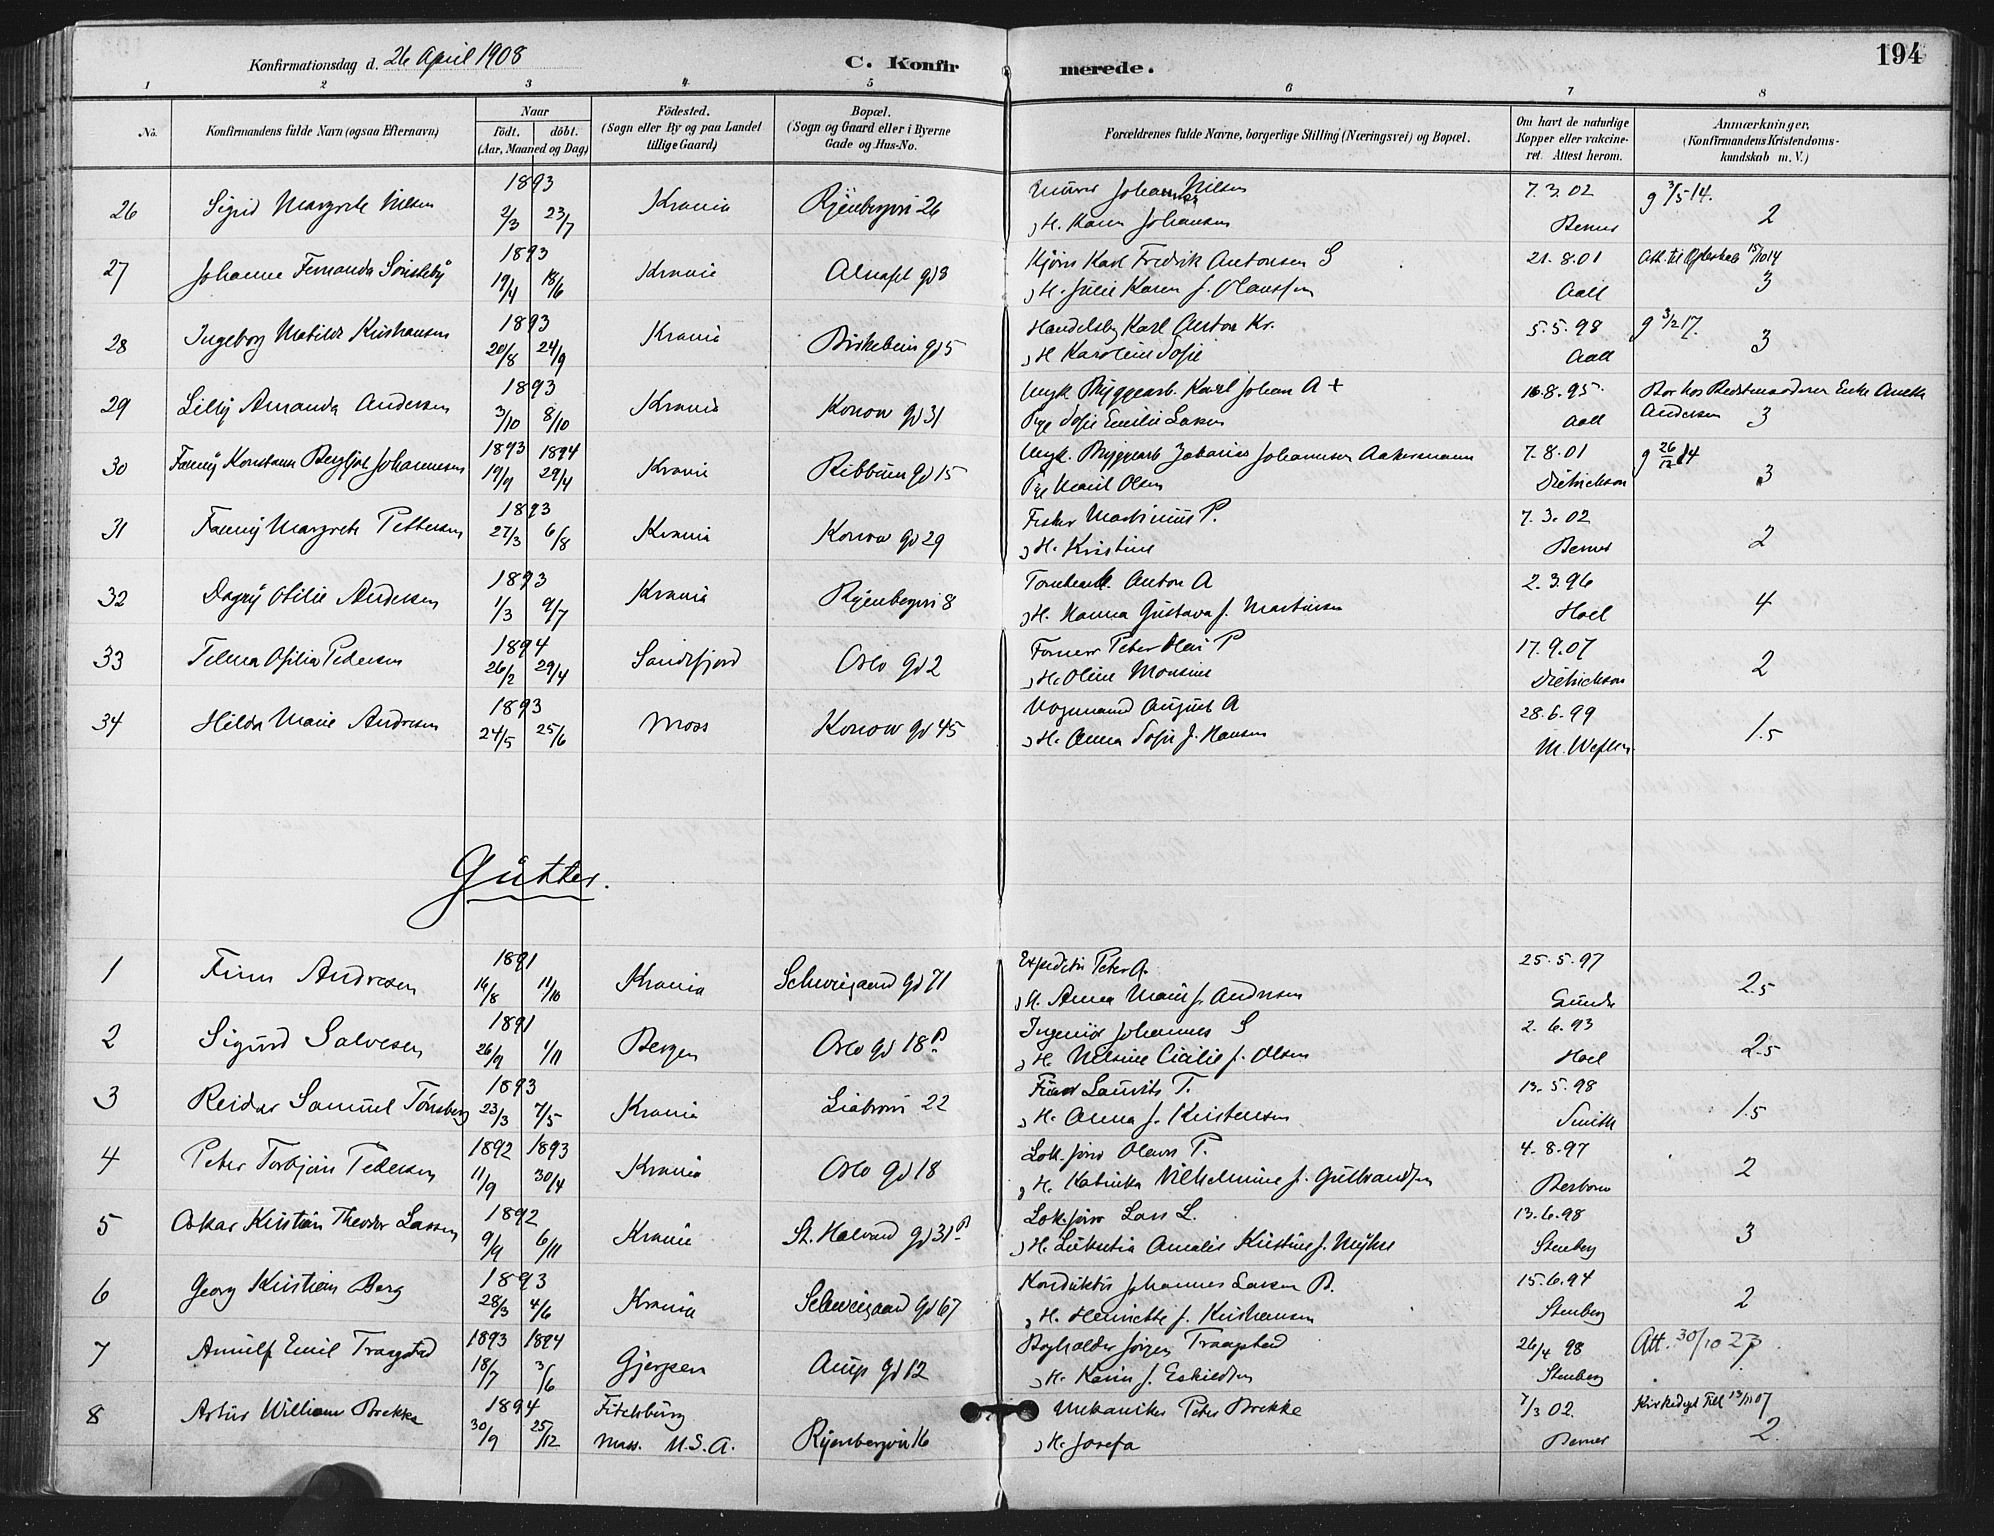 Konfirmationsdag d. 26 April 1908
C. Konfirmerede.
194
1 2 3 4 5 6 7 8
No.
Konfirmandens fulde Navn (ogsaa Efternavn)
Naar
födt. döbt.
(Aar, Maaned og Dag)
Födested.
(Sogn eller By og paa Landet
tillige Gaard)
Bopæl.
(Sogn og Gaard eller i Byerne
Gade og Hus-No.
Forældrenes fulde Navne, borgerlige Stilling (Næringsvei) og Bopæl.
Om havt de naturlige
Kopper eller vakcine-
ret. Attest herom.
Anmærkninger,
(Konfirmandens Kristendoms-
kundskab m. V.)
26 Sigrid Margrete Nilsen 1893 2/3 23/7 Krania Ryenbergvei 26 Murer Johannes Nilsen 7.3.02 g 3/5 14.
, H. Karen Johansen Berner 2
27 Johanne Fernanda Sørisleby 1893 19/4 18/6 Krania Alnafet gd 8 Kjører Karl Fredrik Antonsen S 21.8.01 15/10 14
, H. Julie Karen f. Olaussen Aall 3
28 Ingeborg Matilde Kristiansen 1893 20/8 24/9 Krania Birkebein gd 5 Handelsby Karl Anton Kr. 5.5.98 g 3/2 17.
, H Karoline Sofie Aall 3
29 Lilly Amanda Andersen 1893 3/10 8/10 Krania Konow gd 31 Ungk. Bryggearb. Karl Johan A + 16.8.95 Bor hos Bedstemoderen Enke Anette
Pige Sofie Emilie Larsen Aall Andersen 3
30 Fanny Konstanse Bergljot Johannesen 1893 1894 19/9 29/4 Krania Ribbun gd 15 Ungk. Bryggearb Zakarias Johannesen Aakermann 7.8.01 g 26/12 14
Pige Marit Olsen Dietrichson 3
31 Fanny Margrete Pettersen 1893 27/3 6/8 Krania Konow gd 29 Fisker Martinius P. 7.3.02
, H. Kristine Berner 2
32 Dagny Otilie Andersen 1893 1/3 9/7 Krania Ryenbergvei 8 Tomtearb. Anton A 2.3.96
, H. Hanna Gustava f. Martinsen Hoel 4
33 Telma Ofilia Pedersen 1894 26/2 29/4 Sandefjord Oslo gd 2 Former Peter Olai P 17.9.07
, H. Oline Monsine Dietrichson 2
34 Hilda Marie Andresen 1893 24/5 25/6 Moss Konow gd 45 Vognmand August A 28.6.99
, H. Anna Sofie f. Hansen M. Weflen 1.5
Gutter.
1 Finn Andresen 1891 16/8 11/10 Krania Schweigaard gd 71 Expeditør Peter A. 25.5.97
, H. Anna Marie f. Andresen 2.5
2 Sigurd Salvesen 1891 26/9 1/11 Bergen Oslo gd 18 B Ingeniør Johannes S 2.6.93
, H. Nelsine Cicilie f. Olsen Hoel 2.5
3 Reidar Samuel Tønsberg 1893 23/3 7/5 Krania Liabrovei 22 Laurits T. 13.5.98
, H. Anna f. Kristensen Smith 1.5
4 Peter Torbjørn Pedersen 1892 1893 11/9 30/4 Krania Oslo gd 18 Lok. fører Olaus P. 4.8.97
, H. Katinka Vilhelmine f. Gulbrandsen 2
5 Oskar Kristian Theodor Larsen 1892 9/9 6/11 Krania St. Halvard gd 31 B Lok. fører Lars L. 13.6.98
, H. Lukretia Amalie Kristine f. Myhre Stenberg 3
6 Georg Kristian Berg 1893 28/3 4/6 Krania Schweigaard gd 67 Konduktør Johannes Larsen B. 15.6.94
, H. Henriette f. Kristiansen Stenberg 2
7 Arnulf Emil Traagstad 1893 1894 18/7 3/6 Gjerpen Arup gd 12 Bogholder Jørgen Traagstad 26/4 98 Att. 30/10 23
, H. Karin f. Eskildsen Stenberg
8 Artur William Brekke 1894 30/9 25/12 Fitchburg Ryenbergvei 16 Mekaniker Peter Brekke 7/3 02. 13/11 07
Mass. U.S.A. , H. Josefa Berner 2.